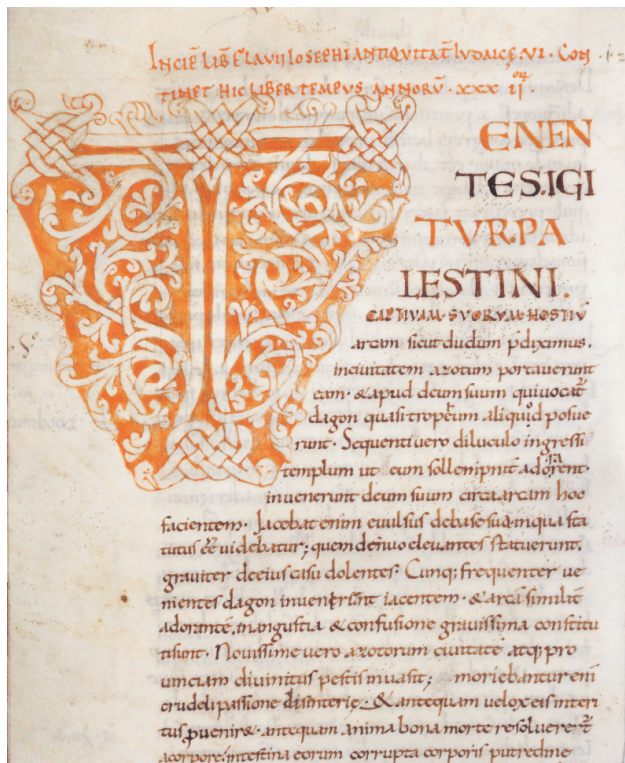 INCIP̄ LIB̄ FLAVII IOSEPHI ANTIQVITAT̄ IVDAICĘ·VI· CON
TINET HIC LIBER TEMPVS ANNORV̄·XXX II
T ENEN
TES·IGI
TVR·PA
LESTINI.
CAPTIVAM·SVORVM·HOSTIV̄
arcam sicut dudum p̄diximus.
inciuitatem azotum portauerunt
eam· &apud deum suum quiuocat̄
dagon quasi tropęum aliquod posue
runt· Sequenti uero diluculo ingressi
templum ut eum sollempnit̄ adorarent·
inuenerunt deum suum circa arcam hoc
facientem· Iacebat enim euulsus debase sua inqua sta
tutus eē̄ uidebatur; quem denuo eleuantes statuerunt,
grauiter deeius casu dolentes· Cunq; frequenter ue
nientes dagon inuenissent iacentem· &arcā similit̄
adorantē, inangustia &confusione grauissima constitu
tisunt· Nouissime uero azotorum ciuitatē atq; pro
uinciam diuinitus pestis inuasit; moriebantur eni
crudeli passione disinterię· &antequam uelox eis interi
tus puenir&· antequam anima bona morte resoluerēt̄
acorpore, intestina eorum corrupta corporis putredine